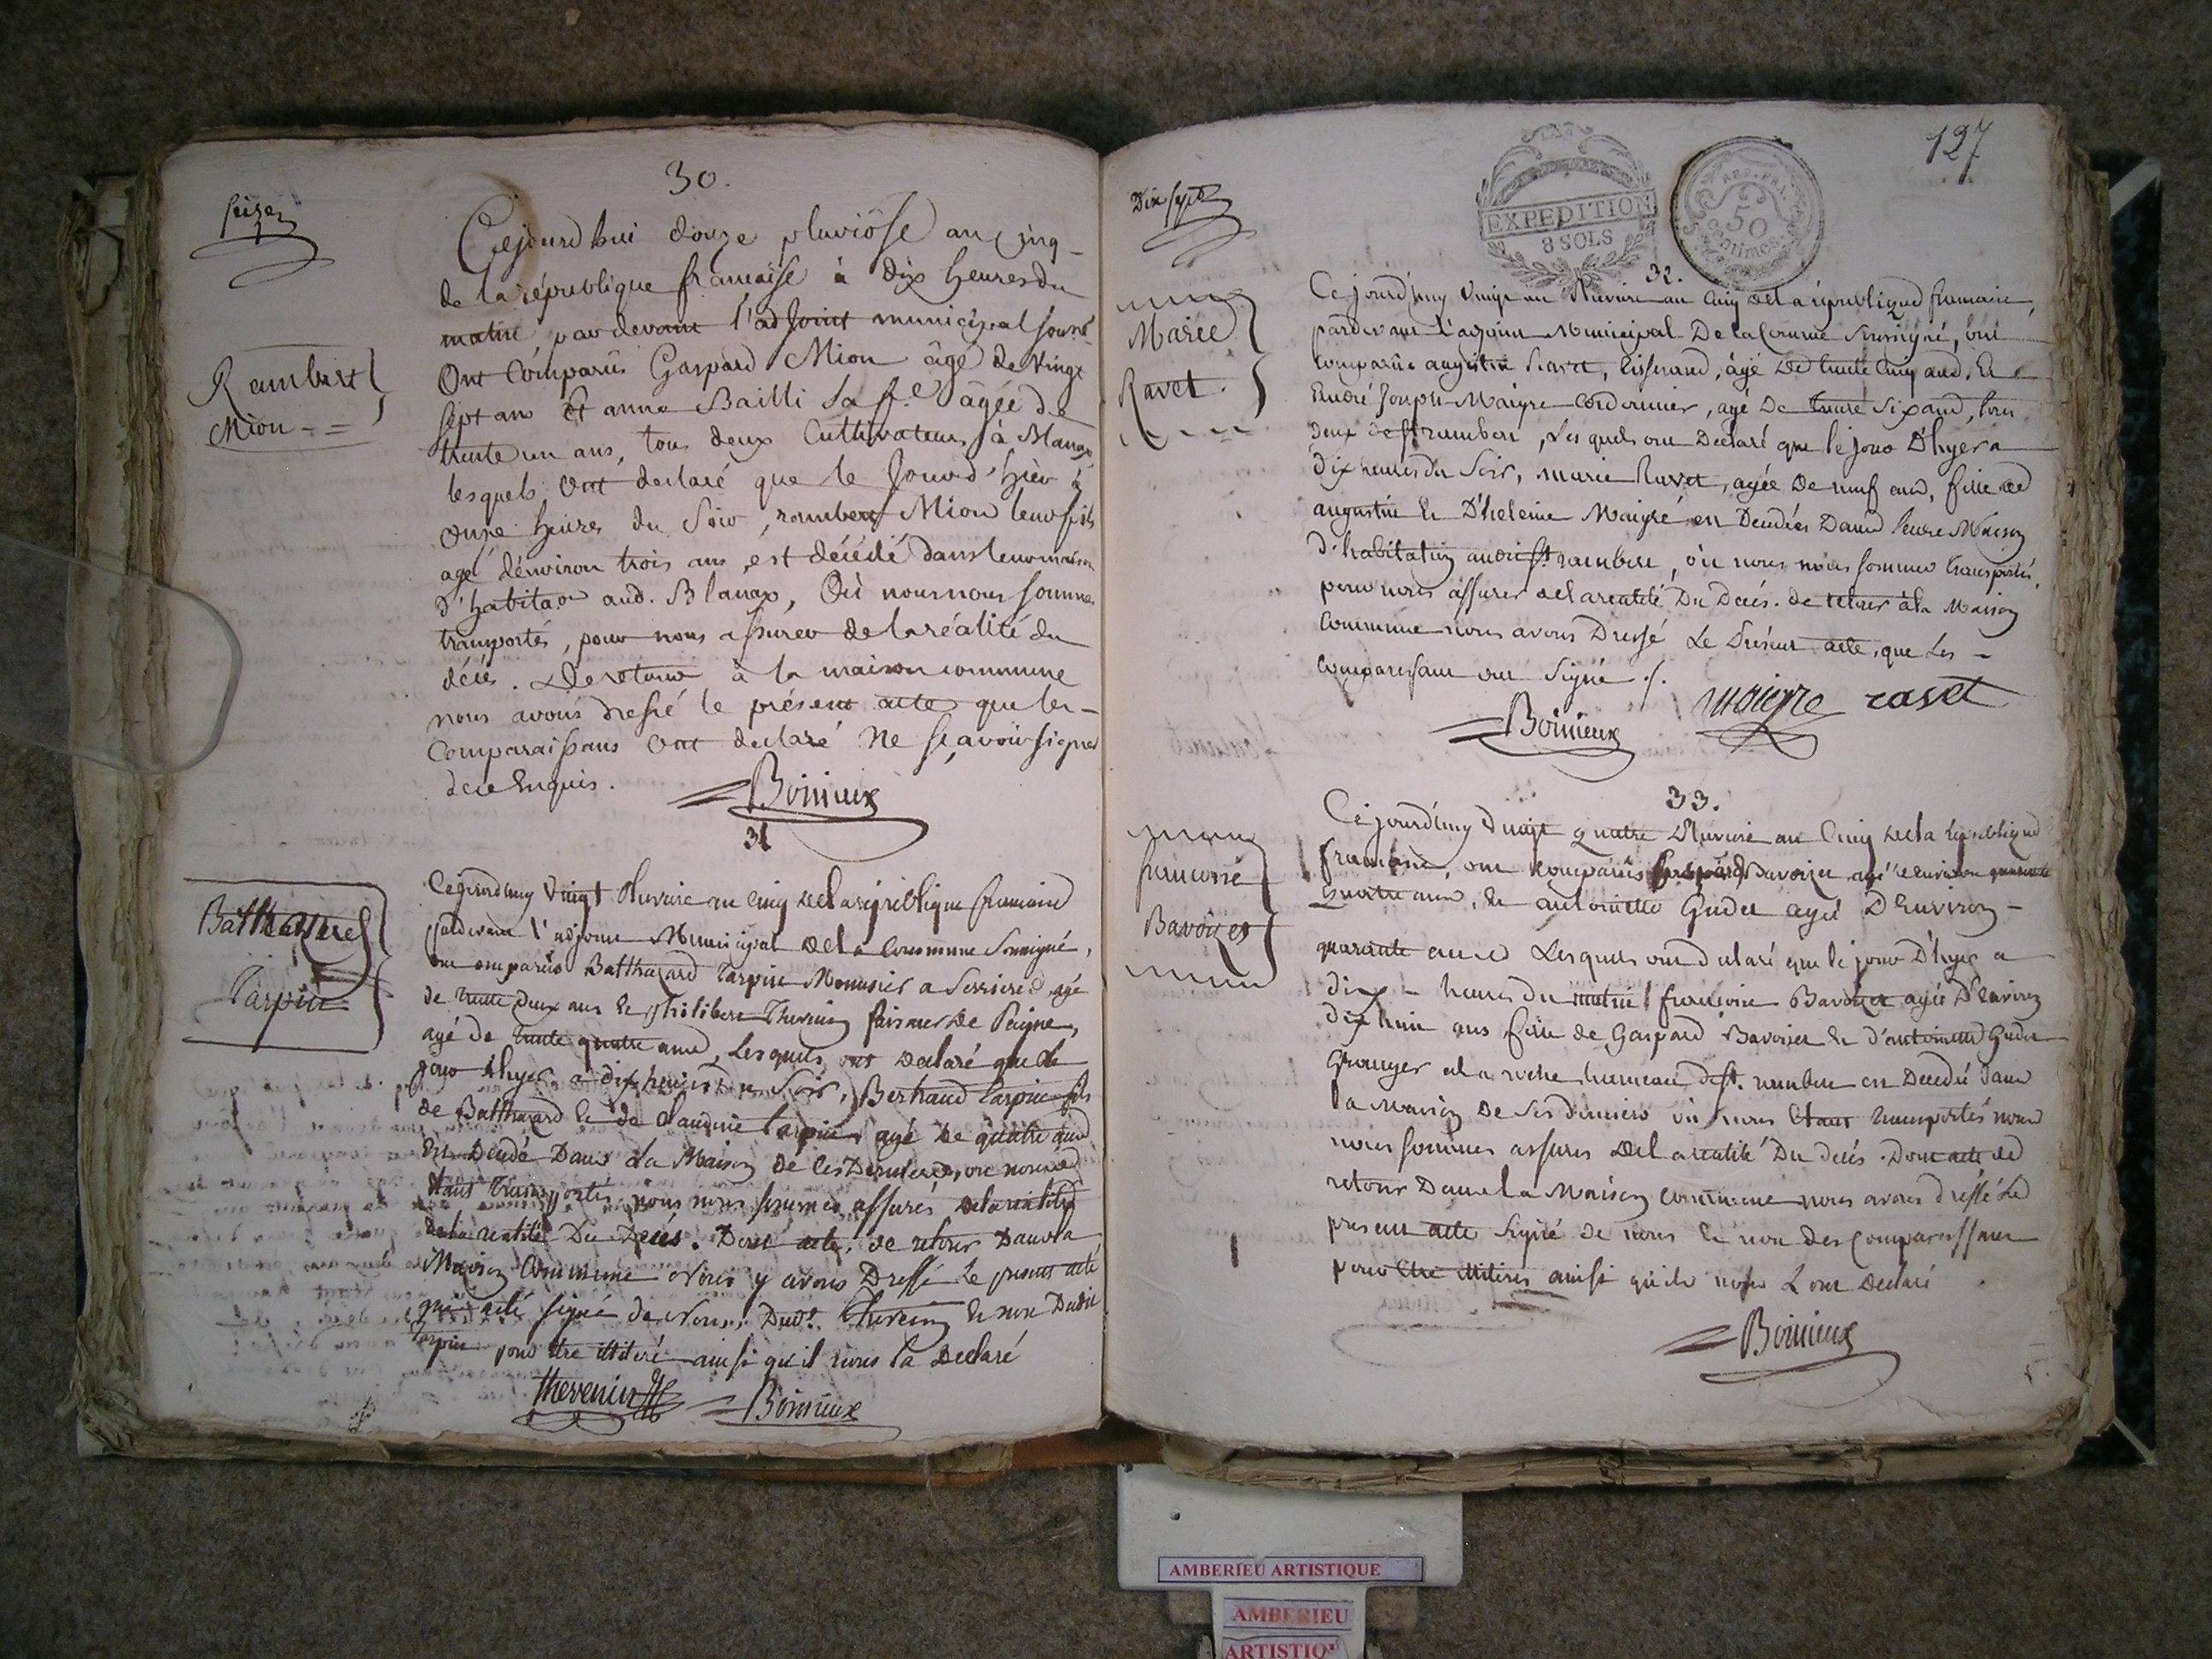 30.
seize
Rambert
Mion
Cejourdhui douze pluviôse an cinq
de la république francaise à dix heures du
matin par devant l'adjoint municipal sousné
Ont Comparûs Gaspard Mion âgé de vingt
sept ans et anne Bailli Sa fe âgée de
trente un ans, tous deux Cultivateurs à Blanas
lesquels ont declaré que le Jour d'hièr à
onze heures du Soir, rambert Mion leur fils
agé d'énviron trois ans, est décédé dans leur maison
d'habitaon aud. Blanas, Où nous nous sommes
transportés, pour nous assurer de la réalité du
décès. De retour à la maison commune
nous avons dressé le présent acte que les
Comparaissans ont declaré Ne Sçavoir signer
de ce Enquis.
Bonnieux
31
Balthazard
Tarpin
Cejourdhuy vingt Pluviose an cinq de la république francaise
pardevant l'adjoint Municipal de la Commune Soussigné,
ont comparûs Balthazard Tarpin Meunier a Serrieres, agé
de trente deux ans et philibert Thevenin faiseur de Peigne,
agé de trente quatre ans, Lesquels ont declaré que le
jour d'hyer a dix heures du Soir, Bertrand Tarpin fils
de Balthazard et de Claudine Tarpin, agé de quatre ans
est Decedé Dans la Maison de ces Derniers, où nous
étant transportés nous nous sommes assurés de la réalité
de la réalité Du Decés. Dont acte, de retour Dans la
Maison Commune Nous y avons Dressé le present acte
qui a été signé de Nous, Dudt. thevenin et non Dudit
Tarpin pour être illitéré ainsi qu'il nous l'a Declaré
thevenin Bonnieux
127
Dix sept
EXPEDITION
8 SOLS
REP. FRA.
50
centimes
32.
Marie
Ravet.
Ce jourd'huy Vingt un Pluviose an Cinq de la république francaise,
pardevant l'adjoint Municipal De la Commune Soussigné, ont
comparûs augustin Ravet, tisserand, âgé De trente Cinq ans, Et
André Joseph Maigre Cordonnier, agé De trente Six ans, tous
deux de st rambert, Lesquels ont Declaré que le jour D'hyer a
dix heures du Soir, marie Ravet, agée De neuf ans, fille de
augustin et D'heleine Maigre est Decedée Dans leure Maison
D'habitation audit St rambert, où nous nous sommes transportés,
pour nous assurer de la réalité Du Decés. de retour à la Maison
Commune nous avons Dressé Le Présent acte, que Les
Comparessant ont Signé ./.
Bonnieux maigre ravet
33.
francoise
Bavozet
Ce jourd'huy vingt quatre Pluviose an Cinq de la République
francaise, ont comparûs Gaspard Bavozet agé d'environ quarante
quatre ans, et antoinette Gudet agée D'Environ
quarante ans Lesquels ont declaré que le jour D'hyer a
dix heures du matin francoise Bavozet agée D'environ
dix huit ans fille de Gaspard Bavozet et d'antoinette Gudet
Granger a la roche hameau de St. rambert est Decedée dans
la Maison De Ses derniers où nous étant transportés nous
nous sommes assures de la réalité Du decés. Dont acte de
retour Dans la Maison Commune nous avons dressé Le
present acte Signé de nous et non des Comparessans
pour être illiterés ainsi qu'ils nous L'ont Declaré
Bonnieux
AMBERIEU ARTISTIQUE
AMBERIEU
ARTISTIQU